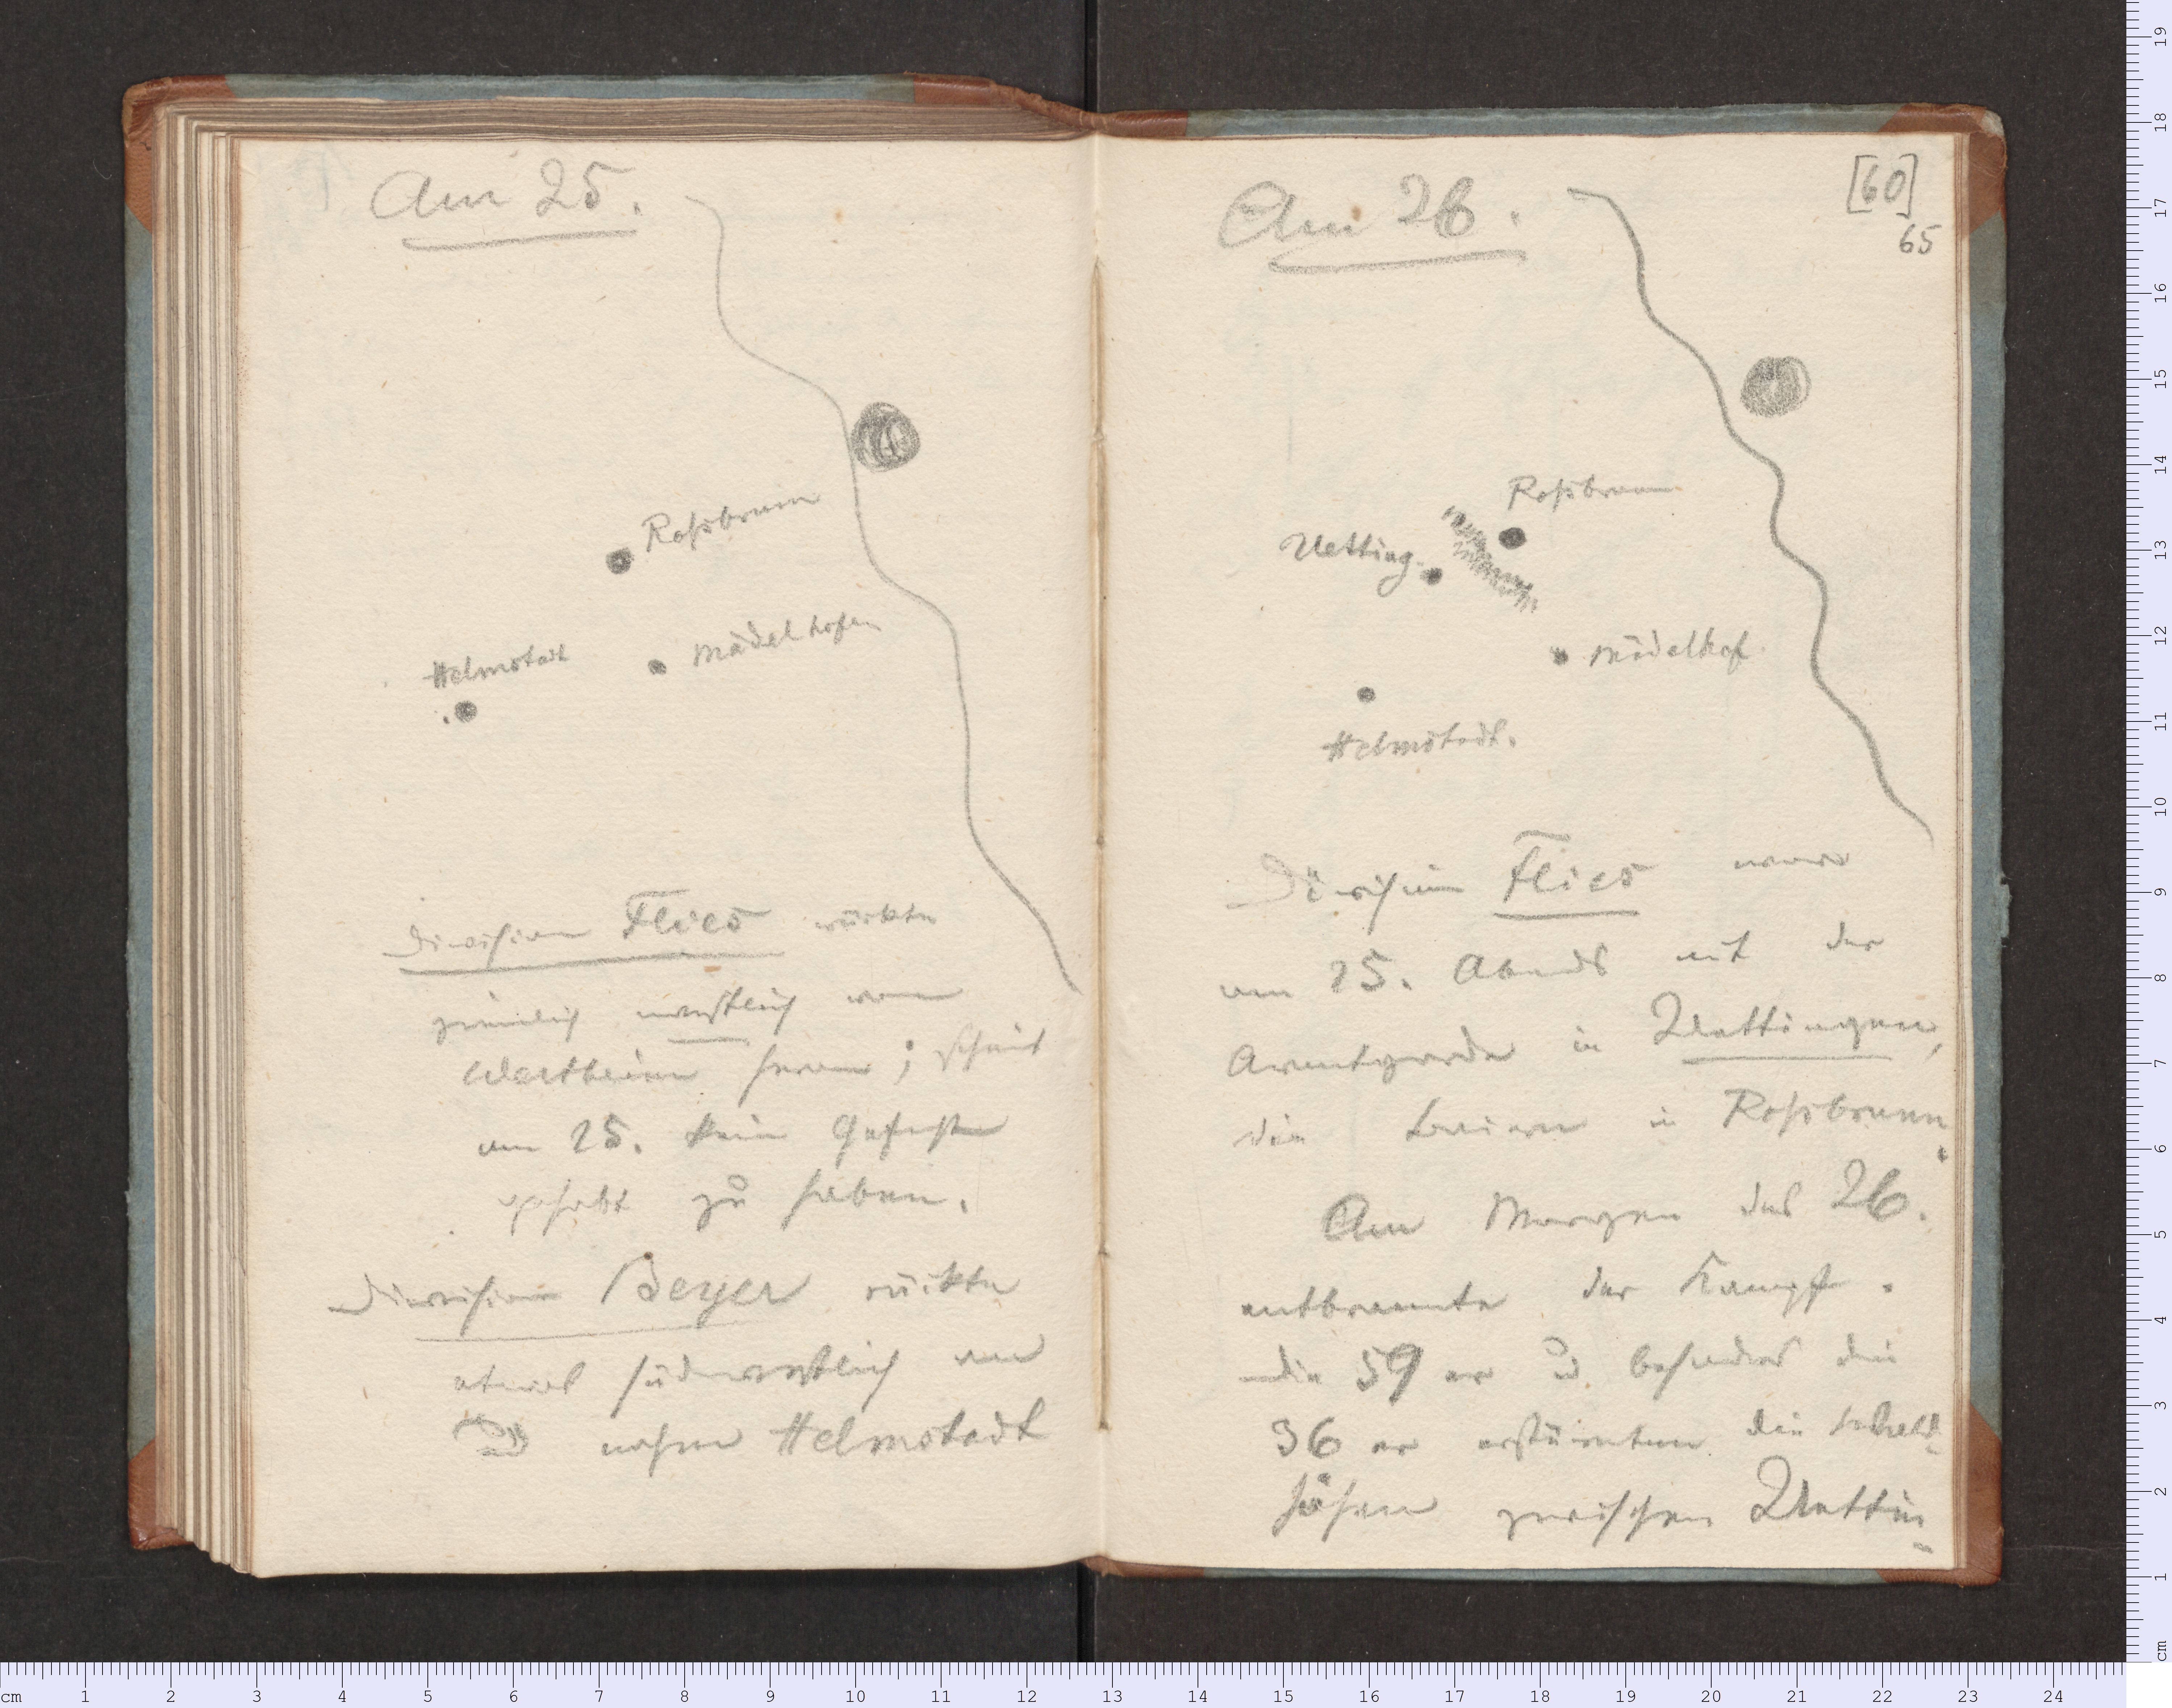 Am 25.
Roßbrunn
Mädelhofen
Helmstadt
Division Flies rückte
ziemlich westlich von
Wertheim heran; scheint
am 25. kein Gefecht
gehabt zu haben.
Division Beyer rückte
etwas südwestlich an
u nahm Helmstadt
Am 26.
[60]
65
Roßbrunn
Uetting.
Mädelhof.
Helmstadt.
Division Flies war
am 25. Abends mit der
Avantgarde in Uettingen,
die Baiern in Roßbrunn.
Am Morgen des 26.
entbrannte der Kampf.
die 59 er u besonders die
36 er erstürmten die
Höhen zwischen Uettin-